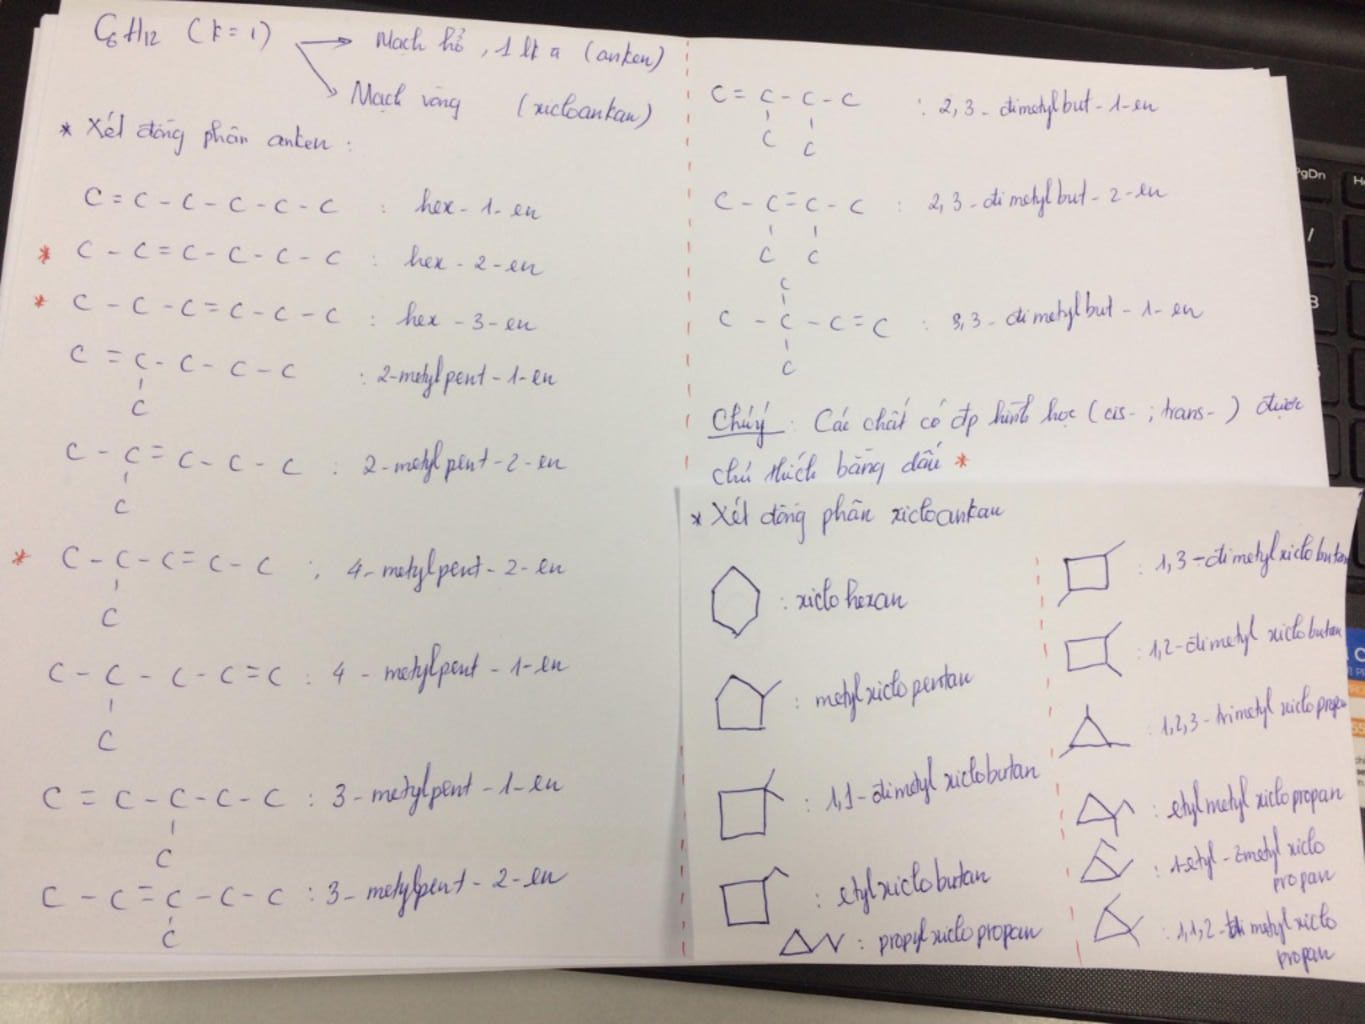 C6H12 (k=1) → Mạch hở, 1 lk π (anken)
→ Mạch vòng (xicloankan)
* Xét đồng phân anken :
C = C - C - C - C - C : hex - 1 - en
* C - C = C - C - C - C : hex - 2 - en
* C - C - C = C - C - C : hex - 3 - en
C = C - C - C - C : 2-metylpent-1-en
C
C - C = C - C - C : 2-metylpent-2-en
C
* C - C - C = C - C : 4-metylpent-2-en
C
C - C - C - C = C : 4 - metylpent-1-en
C
C = C - C - C - C : 3-metylpent-1-en
C
C - C = C - C - C : 3-metylpent-2-en
C
C = C - C - C : 2,3-đimetylbut-1-en
C C
C - C = C - C : 2,3-đimetylbut-2-en
C C
C
C - C - C = C : 3,3-đimetylbut-1-en
C
Chú ý : Các chất có đp hình học (cis- ; trans- ) được
chú thích bằng dấu *
* Xét đồng phân xicloankan
: xiclohexan
: metylxiclopentan
: 1,1-đimetylxiclobutan
: etylxiclobutan
: propylxiclopropan
: 1,3-đimetylxiclobutan
: 1,2-đimetyl xiclobutan
: 1,2,3-trimetyl xiclopropan
: etylmetylxiclopropan
: 1-etyl-2metylxiclo
propan
: 1,1,2-trimetylxiclo
propan
PgDn